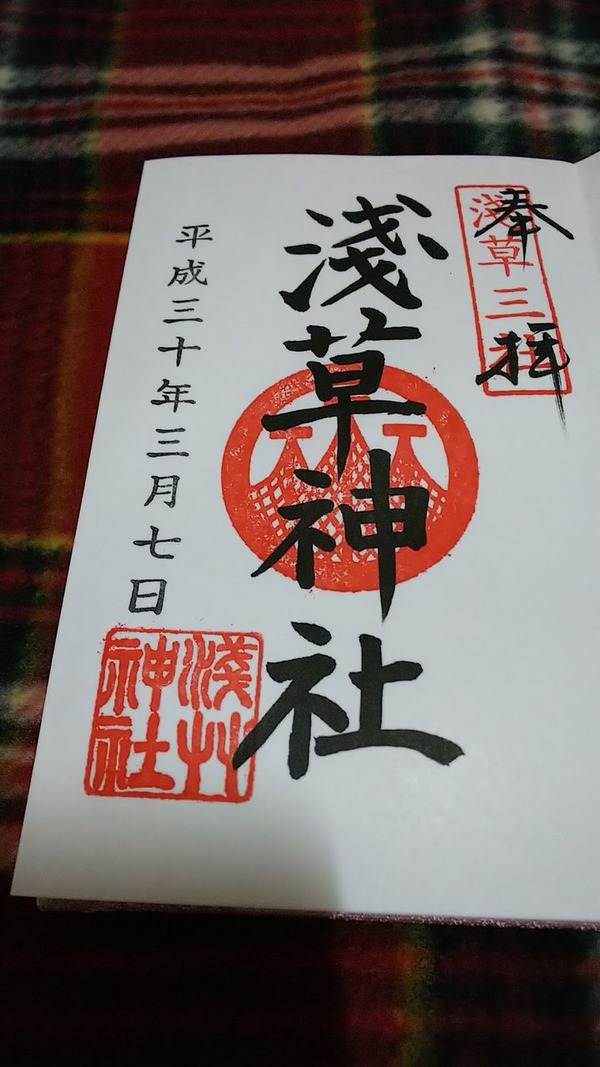 奉拝
淺草三社
淺草神社
平成三十年三月七日
淺艸
神社